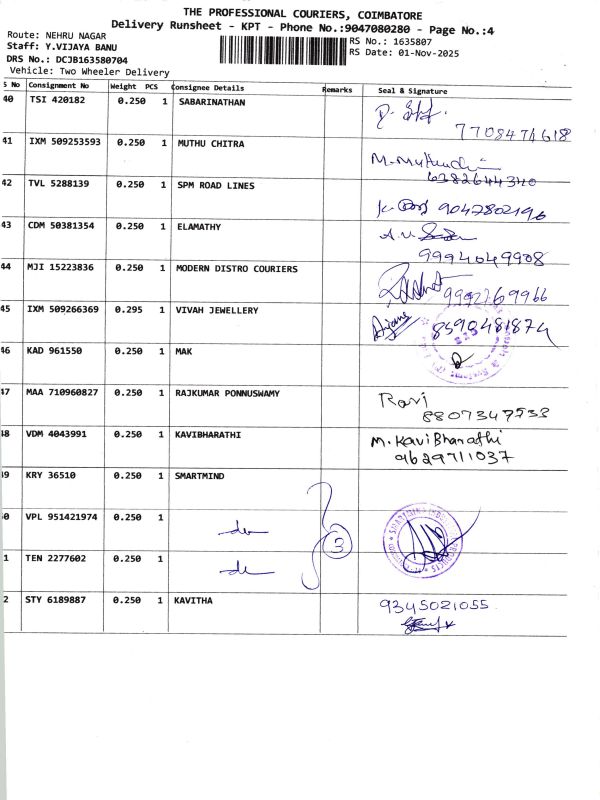 THE PROFESSIONAL COURIERS, COIMBATORE
Delivery Runsheet - KPT - Phone No.:9047080280 - Page No.:4
Route: NEHRU NAGAR
Staff: Y.VIJAYA BANU
DRS No.: DCJB163580704
Vehicle: Two Wheeler Delivery
RS No.: 1635807
RS Date: 01-Nov-2025
S No Consignment No Weight PCS Consignee Details Remarks Seal & Signature
40 TSI 420182 0.250 1 SABARINATHAN
7708474618
41 IXM 509253593 0.250 1 MUTHU CHITRA
6382644340
42 TVL 5288139 0.250 1 SPM ROAD LINES
9047802196
43 CDM 50381354 0.250 1 ELAMATHY
9994049908
44 MJI 15223836 0.250 1 MODERN DISTRO COURIERS
9992769966
45 IXM 509266369 0.295 1 VIVAH JEWELLERY
8590481874
46 KAD 961550 0.250 1 MAK
47 MAA 710960827 0.250 1 RAJKUMAR PONNUSWAMY
Ravi
8807347533
48 VDM 4043991 0.250 1 KAVIBHARATHI
M. KaviBharathi
9629711037
49 KRY 36510 0.250 1 SMARTMIND
0 VPL 951421974 0.250 1
do
3
1 TEN 2277602 0.250 1
do
2 STY 6189887 0.250 1 KAVITHA
9345021055